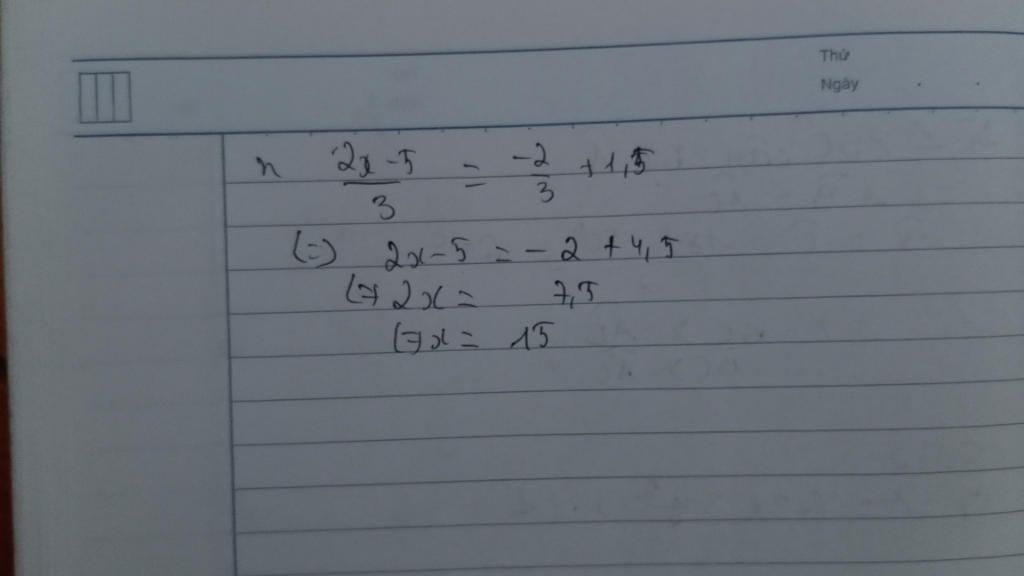 Thứ
Ngày
n (2x-5)/3 = -2/3 + 1,5
(=) 2x-5 = -2 + 4,5
(=) 2x = 7,5
(=) x = 15